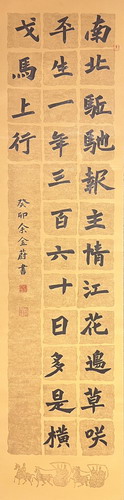 南北駈馳報主情江花邊草咲
平生一年三百六十日多是橫
戈馬上行
癸卯余金蔚書